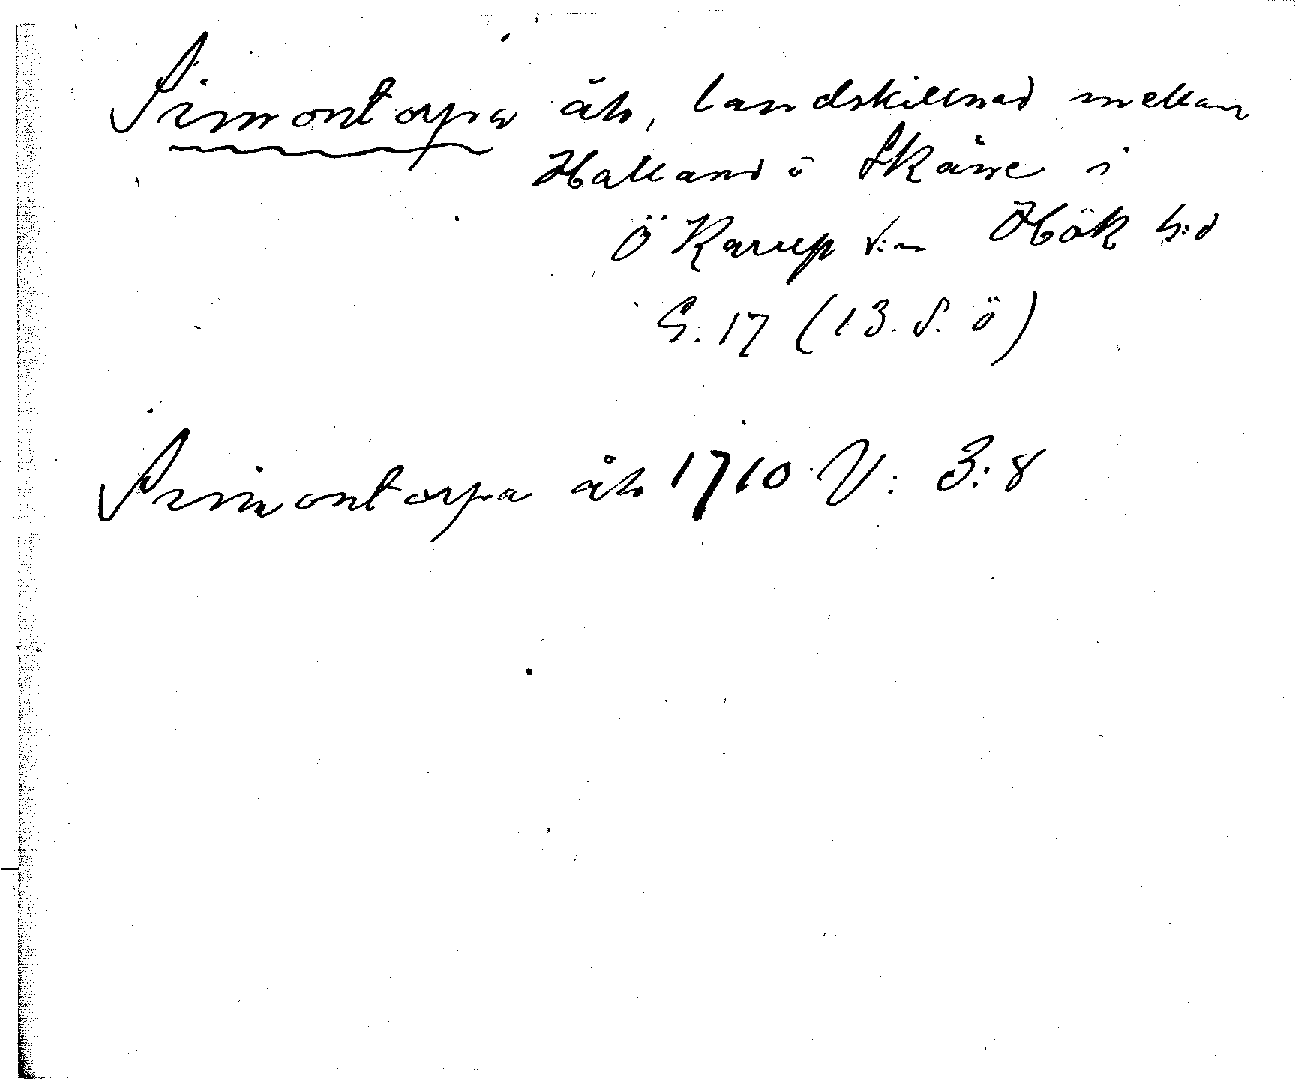 Simontorpa åh, landskillnad mellan
Halland o Skåne i
Ö Karup s:n Hök h:d
G. 17 (13. S. ö)
Simontorpa åh 1710 V: 3:8